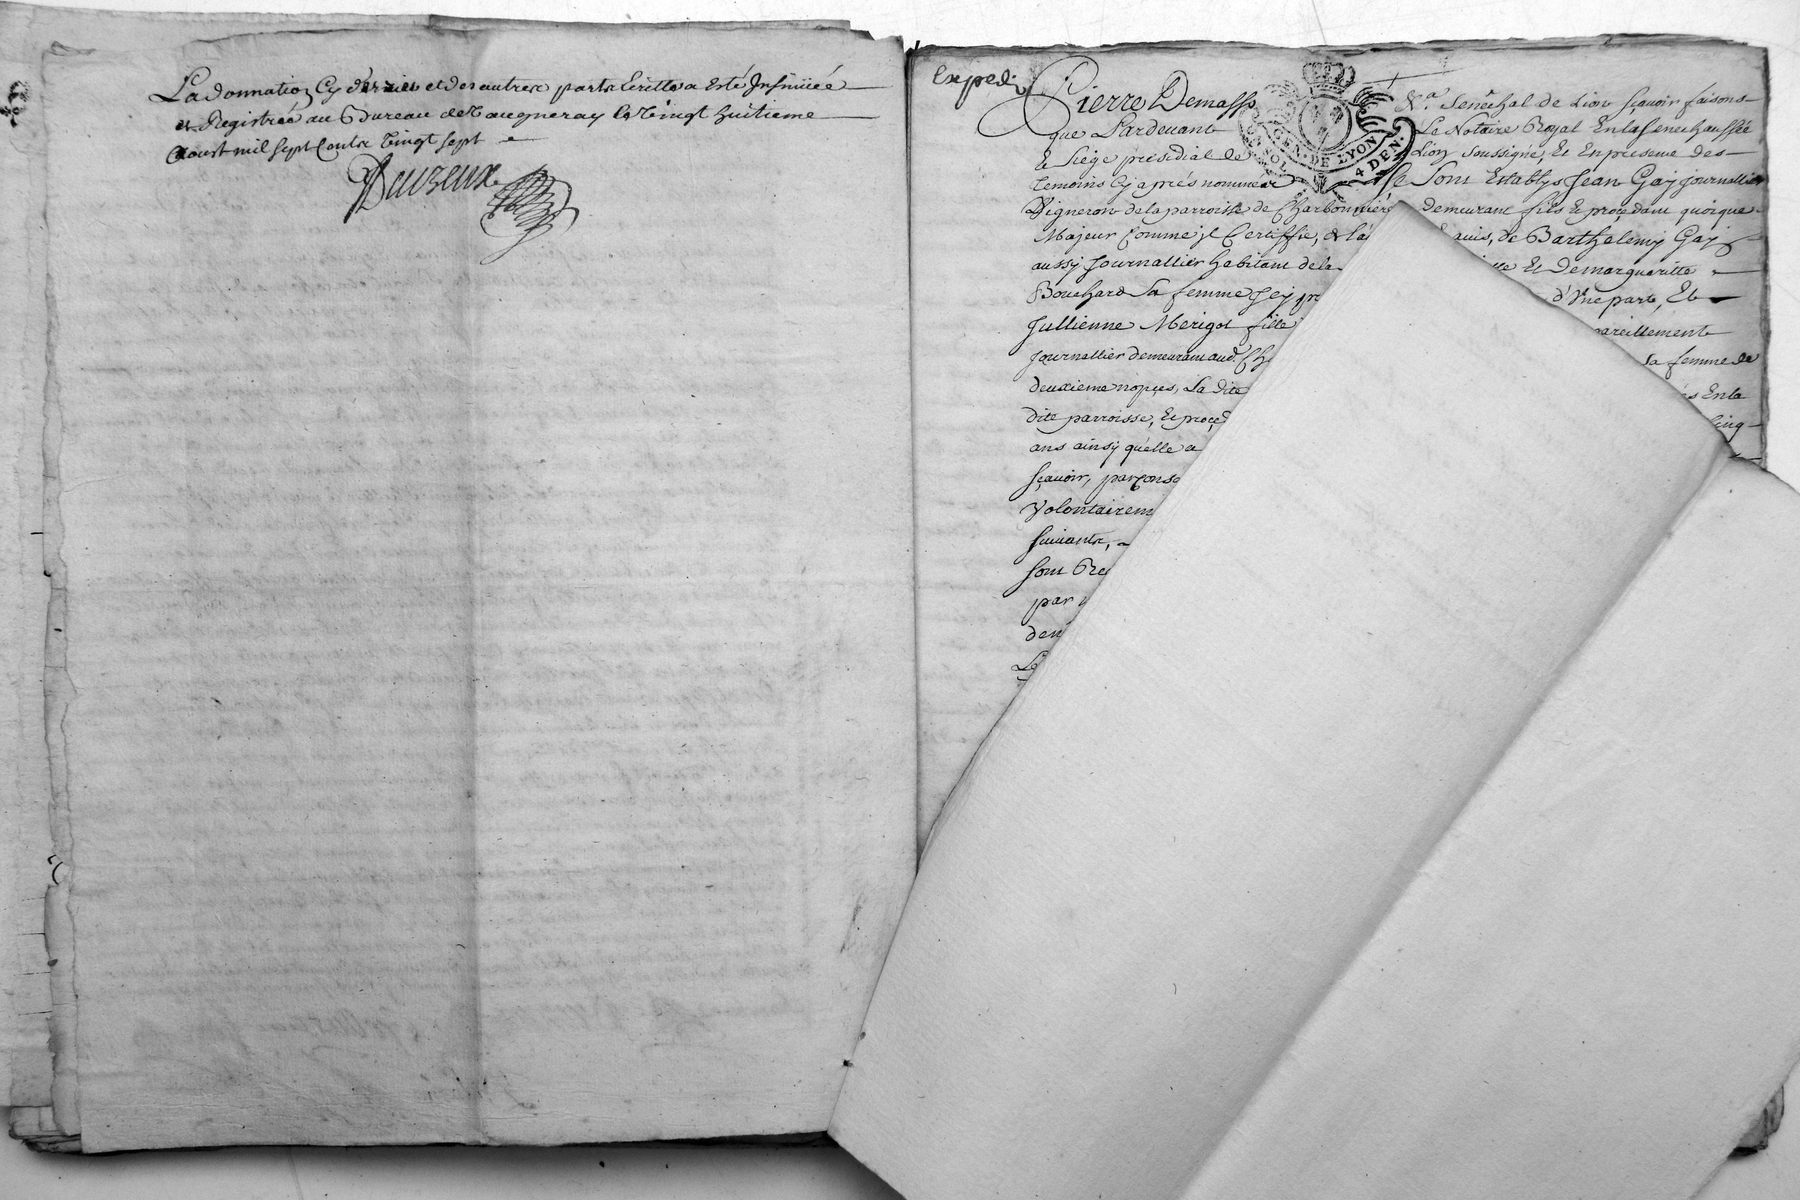 La donnation Cy dernier et des autres parts Ecritte a Esté Insinüée
et Registrée au Bureau de Vaugneray le Vingt huitieme
Aoust mil sept Cents Vingt sept
Dauzeux
Expedi
Pierre Demasso Sénéchal de Lion sçavoir faisons
que Pardevant Le Notaire Royal En la Senechaussée
et Siége présidial de Lion soussigné, Et En presence des
temoins Cy aprés nommés Sont Establys Jean Gay Journallier
Vigneron de la parroisse de Charbonnière demeurant fils Et procedant quoique
Majeur Comme jl Certiffie, de l'a auis, de Barthelemy Gay
aussy Journallier habitant de la Et Demarguaritte
Bouchard Sa femme Jcy d'Vne part, Et
Jullienne Merigot fille pareillement
Journallier demeurant aud. sa femme de
deuxieme nopces, La dite En la
dite parroisse, Et Cinq
ans ainsy qu'elle a
sçauoir,
Volontairem
suiuants,
sont
par
GEN. DE LYON
UN SOL 4 DEN.